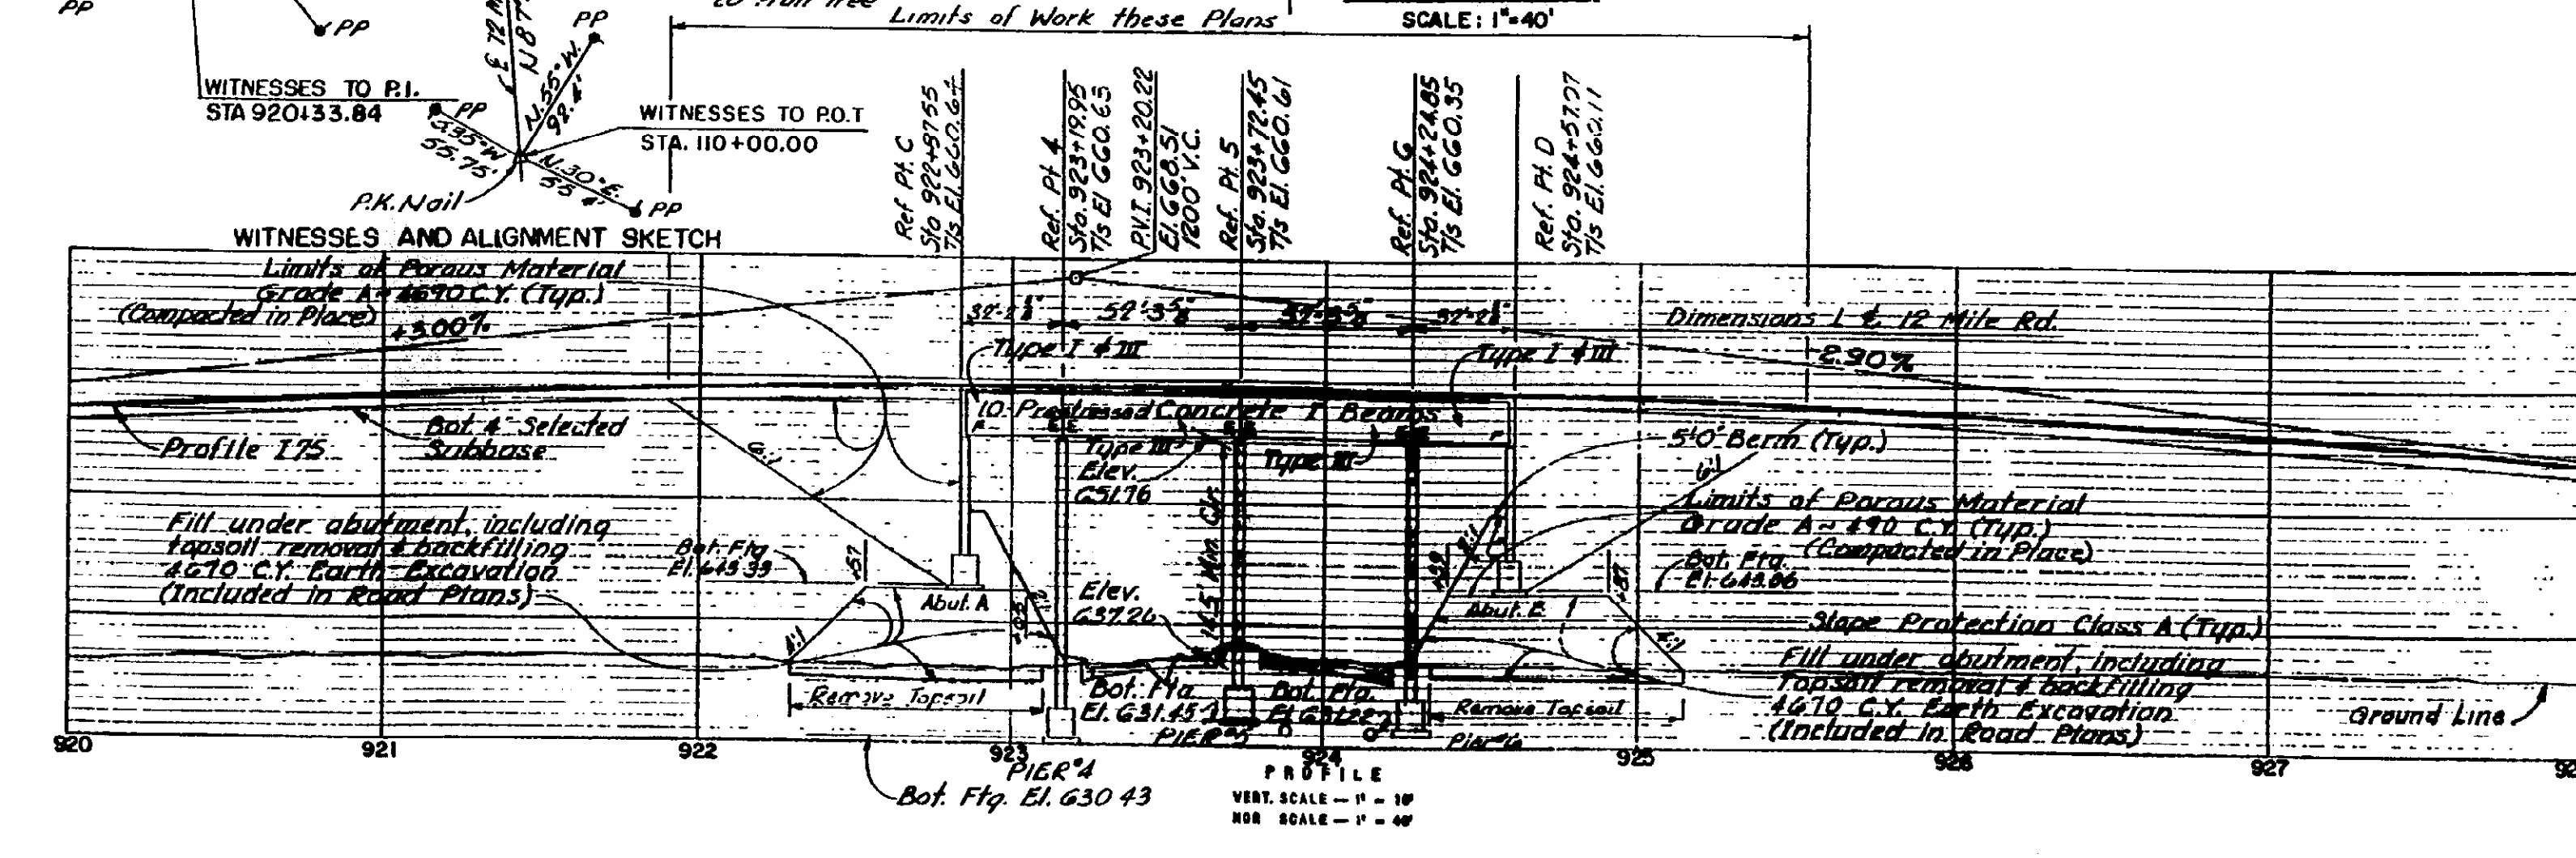 PP
PP
PP
to Fruit Tree
Limits of Work these Plans
SCALE: 1"=40'
WITNESSES TO P.I.
STA 920+33.84
PP
N.55°W.
92.4'
S35°W
55.75'
N.30°E.
55
PP
P.K. Nail
WITNESSES TO P.O.T
STA. 110+00.00
WITNESSES AND ALIGNMENT SKETCH
Ref Pt. C
Sta 922+87.55
T/s El. 660.64
Ref. Pt 4
Sta. 923+19.95
T/s El 660.63
P.V.I. 923+20.22
El. 668.51
1200' V.C.
Ref. Pt. 5
Sta. 923+72.45
T/s El. 660.61
Ref. Pt. 6
Sta. 924+24.85
T/s El. 660.35
Ref. Pt. D
Sta. 924+57.07
T/s El. 660.11
Limits of Porous Material
Grade A ~ C.Y. (Typ.)
(Compacted in Place)
+3.00%
Dimensions ⊥ ℄ 12 Mile Rd.
2.90%
Type I & III
Type I & III
10 Prestressed Concrete I Beams
Profile I75
Bot. 4" Selected
Subbase
6:1
Type III
Elev.
651.76
Type III
5'0" Berm (Typ.)
6:1
Limits of Porous Material
Grade A ~ 490 C.Y. (Typ.)
(Compacted in Place)
Fill under abutment, including
topsoil removal & backfilling
4670 C.Y. Earth Excavation
(Included in Road Plans)
Bot. Ftg
El. 643.33
Abut. A
Elev.
637.26
14.5' Min. Clr.
Abut. B
Bot. Ftg.
El. 643.06
4:1
4:1
Slope Protection Class A (Typ.)
Fill under abutment, including
Topsoil removal & backfilling
4670 C.Y. Earth Excavation
(Included in Road Plans)
Remove Topsoil
Bot. Ftg.
El. 631.45
Bot. Ftg.
Remove Topsoil
Ground Line
PIER #5
Pier #6
920
921
922
923
924
925
926
927
PIER #4
Bot. Ftg. El. 630.43
PROFILE
VERT. SCALE — 1" = 10'
HOR SCALE — 1" = 40'